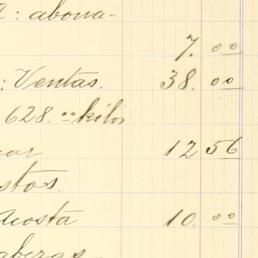 : abona-
7. 00
: Ventas. 38. 00
628.00 kilos
12 56
stos.
Acosta 10. 00